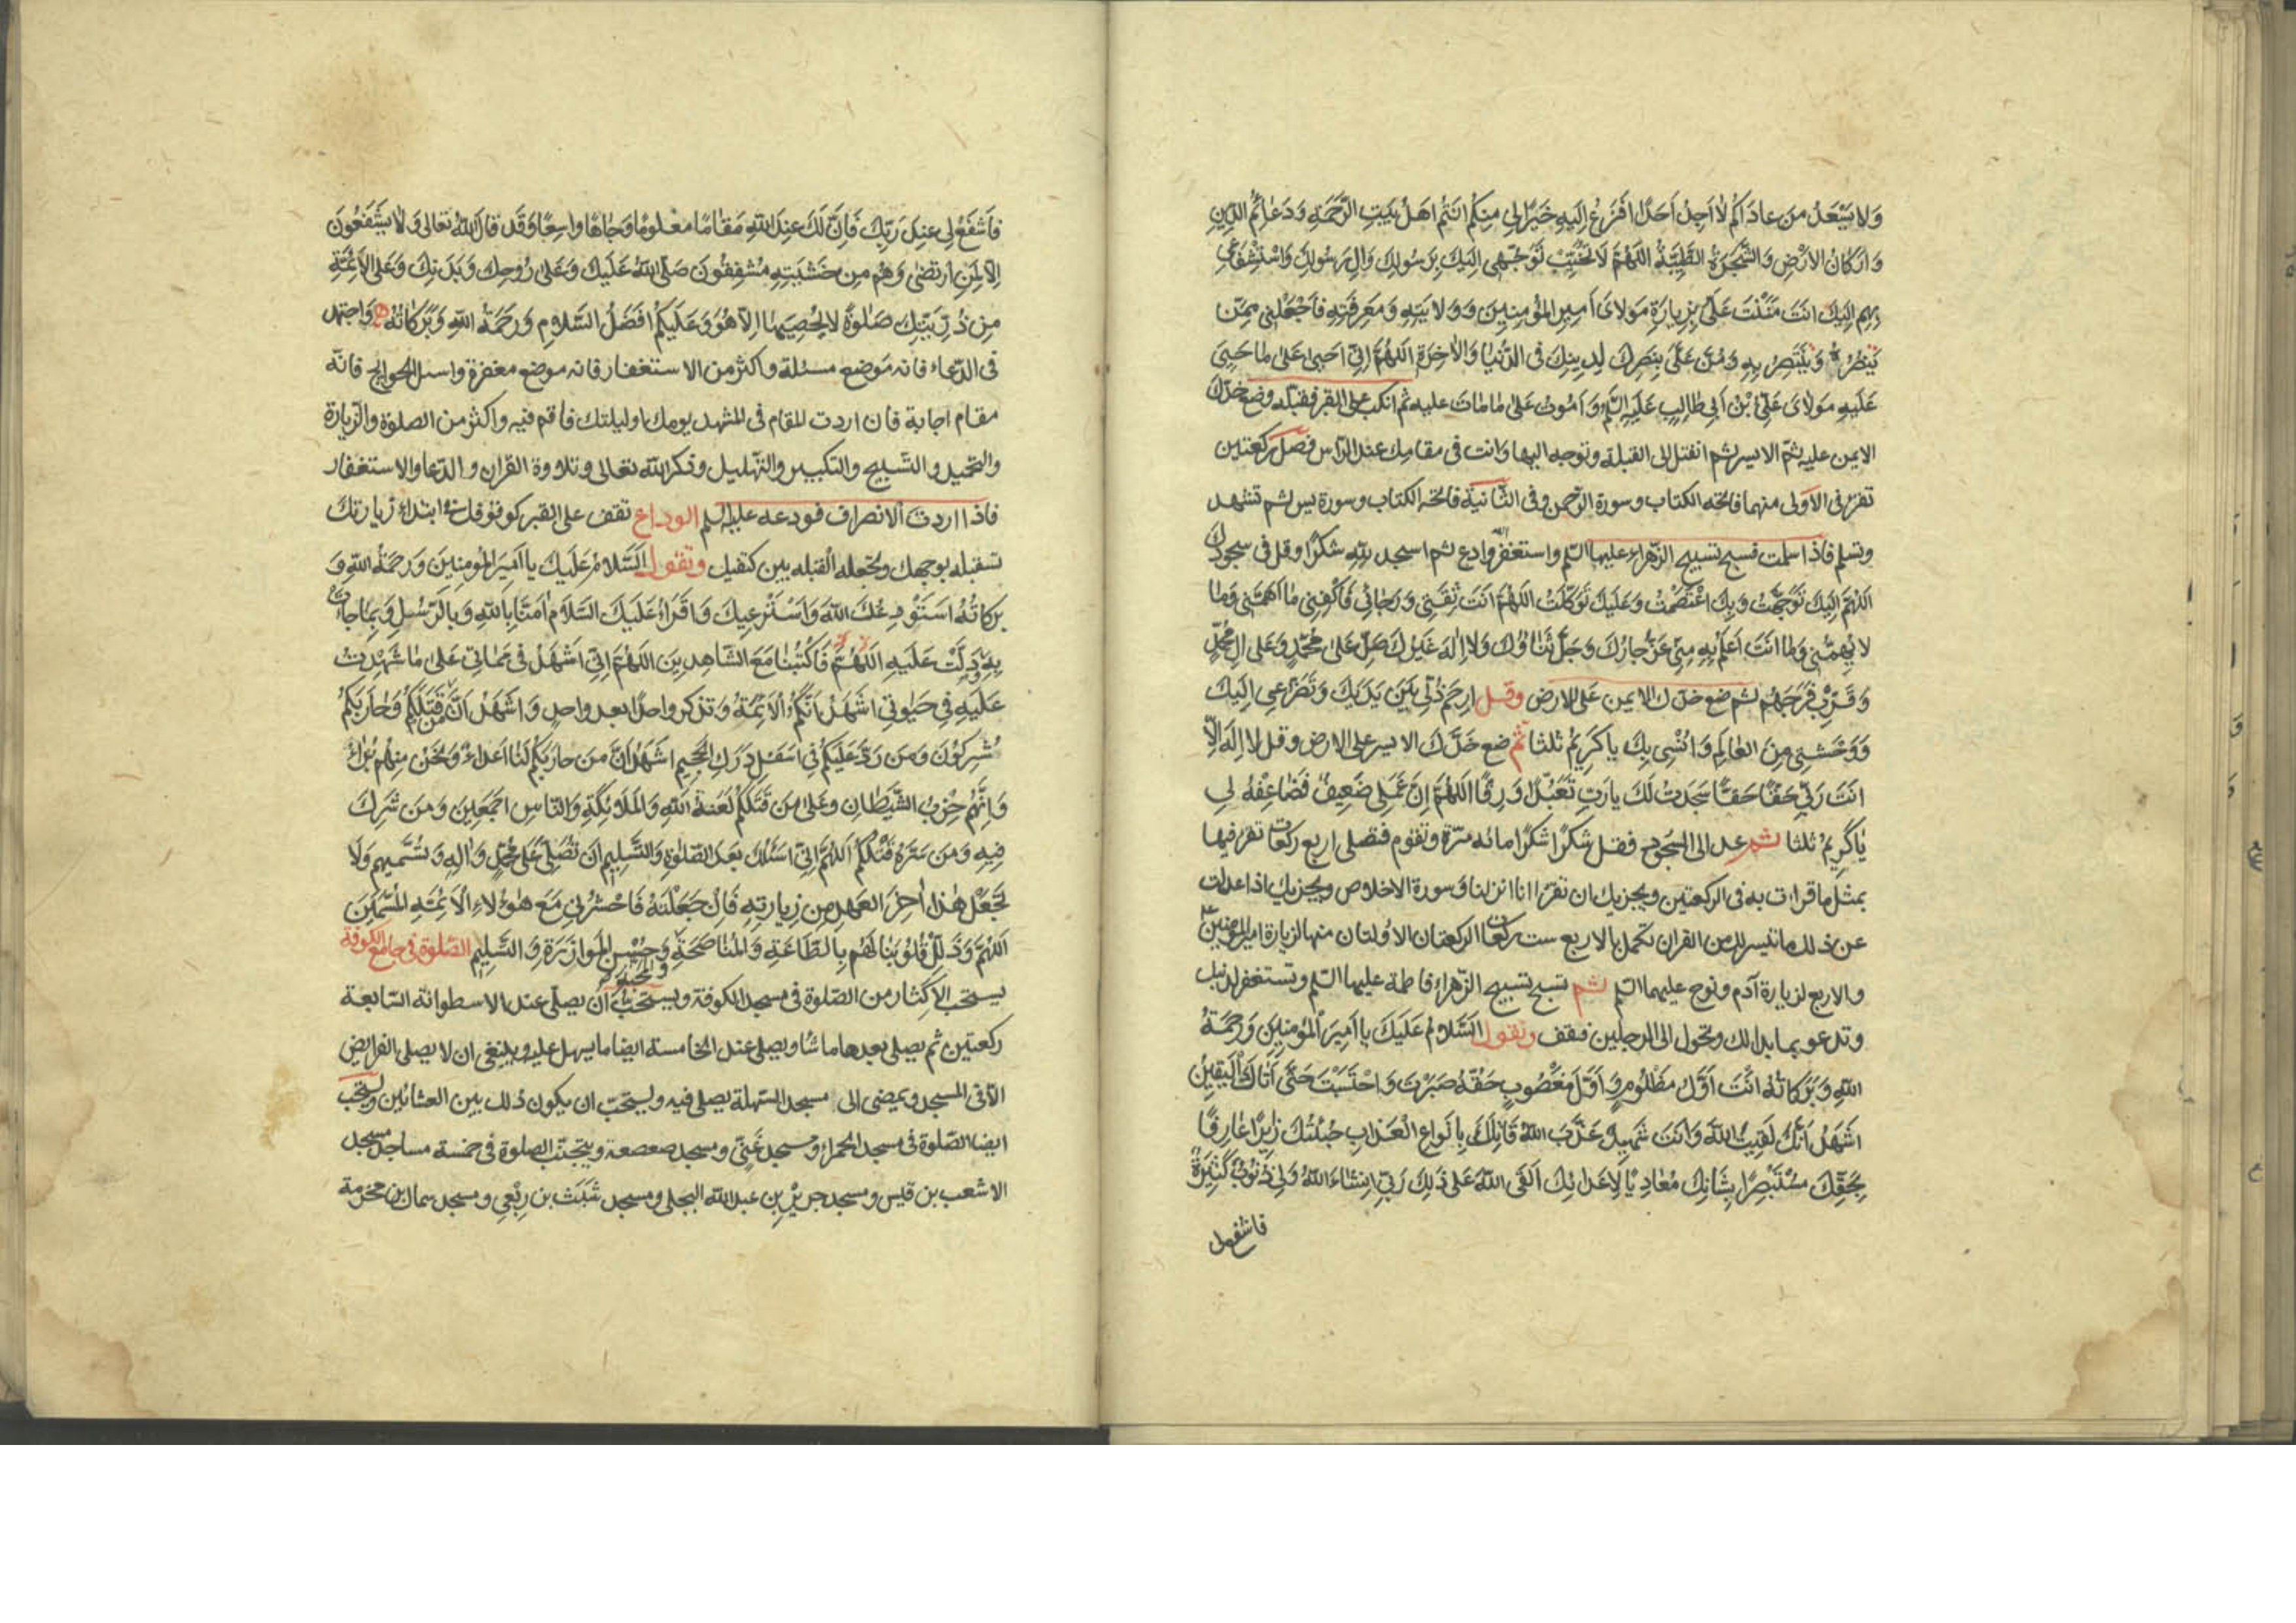 وَلا يَسْعَدُ مَن عاداكُم لا اَجِدُ اَحَدًا اَفْزَعُ اِلَيهِ خَيْرًا لي مِنكُم اَنتُم اَهلُ بَيتِ الرَّحمَةِ وَدَعائِمُ الدّينِ
وَاَركانُ الاَرْضِ وَالشَّجَرَةُ الطَّيِّبَةُ اَللّهُمَّ لا تُخَيِّبْ تَوَجُّهي اِلَيكَ بِرَسُولِكَ وَالِ رَسُولِكَ وَاسْتِشْفاعي
بِهِم اِلَيكَ اَنتَ مَنَنْتَ عَلَيَّ بِزِيارَةِ مَولايَ اَميرِ المُؤمِنينَ وَوِلايَتِهِ وَمَعرِفَتِهِ فَاجْعَلْني مِمَّن
يَنصُرُهُ وَيَنتَصِرُ بِهِ وَمُنَّ عَلَيَّ بِنَصرِكَ لِدِينِكَ فِى الدُّنيا وَالاٰخِرَةِ اَللّهُمَّ اِنّي اَحيى عَلى ما حَيِيَ
عَلَيهِ مَولايَ عَلِيُّ بْنُ اَبي طالِبٍ عَلَيهِ السَّلم وَاَموتُ عَلى ما ماتَ عليه ثم انكب على القبر فقبله وضع خدك
الايمن عليه ثمّ الايسر ثم انفتل الى القبلة وتوجه اليها وانت فى مقامك عند الرّاس فصل ركعتين
تقرء فى الاولى منهما فاتحة الكتاب وسورة الرّحمن وفى الثّانية فاتحة الكتاب وسورة يس ثم تشهد
وتسلم فاذا سلمت فسبح تسبيح الزهراء عليها السّلم واستغفر الله وادع ثم اسجد لِلّهِ شكرًا وقل فى سجودك
اَللّهُمَّ اِلَيكَ تَوَجَّهتُ وَبِكَ اعْتَصَمْتُ وَعَلَيكَ تَوَكَّلتُ اَللّهُمَّ اَنتَ ثِقَتي وَرَجائي فَاكْفِني ما اَهَمَّني وَما
لا يُهِمُّني وَما اَنتَ اَعلَمُ بِهِ مِنّي عَزَّ جارُكَ وَجَلَّ ثَناؤُكَ وَلا اِلٰهَ غَيرُكَ صَلِّ عَلى مُحَمَّدٍ وَعَلى الِ مُحَمَّدٍ
وَقَرِّبْ فَرَجَهُم ثم ضع خدّك الايمن عَلى الارض وقل ارحَم ذُلّي بَينَ يَدَيكَ وَتَضَرُّعي اِلَيكَ
وَوَحْشَتي مِنَ العالَمِ وَاُنْسي بِكَ يا كَريمُ ثلثا ثم ضع خَدَّكَ الايسر على الارض وقل لا اِلٰهَ اِلّا
اَنتَ رَبّي حَقًّا حَقًّا سَجَدتُ لَكَ يا رَبِّ تَعَبُّدًا وَرِقًّا اَللّهُمَّ اِنَّ عَمَلي ضَعيفٌ فَضاعِفْهُ لي
يا كَريمُ ثلثا ثم عد الى السّجود فقل شكرًا شكرًا مائه مرّة وتقوم فتصلى اربع ركعات تقرء فيها
بمثل ما قرات به فى الركعتين ويجزيك ان تقرء انا انزلنا وسورة الاخلاص ويجزيك اذا عدلت
عن ذلك ما تيسر لك من القران تكمل بالاربع ست ركعات الركعتان الاولتان منها لزيارة امير المومنين
والاربع لزيارة آدم ونوح عليهما السّلم ثم تسبح تسبيح الزهراء فاطمة عليها السّلم وتستغفر لذنبك
وتدعو بما بدا لك وتحول الى الرجلين فتقف وتقول اَلسَّلامُ عَلَيكَ يا اَميرَ المُؤمِنينَ وَرَحمَةُ
اللّهِ وَبَرَكاتُهُ اَنتَ اَوَّلُ مَظْلُومٍ وَاَوَّلُ مَغصُوبٍ حَقُّهُ صَبَرتَ وَاحتَسَبتَ حَتّى اَتاكَ اليَقينُ
اَشهَدُ اَنَّكَ لَقيتَ اللّهَ وَاَنتَ شَهيدٌ عَذَّبَ اللّهُ قاتِلَكَ بِاَنواعِ العَذابِ جِئتُكَ زائِرًا عارِفًا
بِحَقِّكَ مُسْتَبْصِرًا بِشَانِكَ مُعادِيًا لِاَعدائِكَ اَلقى اللّهَ عَلى ذلِكَ رَبّي اِنشاءَ اللّهُ وَلي ذُنُوبٌ كَثيرَةٌ
فاشفع لى
فَاشْفَعْ لي عِندَ رَبِّكَ فَاِنَّ لَكَ عِندَ اللّهِ مَقامًا مَعلومًا وَجاهًا واسِعًا وَقَد قالَ اللّهُ تَعالى وَلا يَشْفَعُونَ
اِلّا لِمَنِ ارتَضى وَهُم مِن خَشيَتِهِ مُشفِقُونَ صَلَّى اللّهُ عَلَيكَ وَعَلى رُوحِكَ وَبَدَنِكَ وَعَلَى الاَئِمَّةِ
مِن ذُرِّيَّتِكَ صَلوةً لا يُحصيها اِلّا هُوَ وَعَلَيكُم اَفضَلُ السَّلامِ وَرَحمَةُ اللّهِ وَبَرَكاتُهُ وَاجتهد
فى الدّعاء فانه موضع مسئلة واكثر من الاستغفار فانه موضع مغفرة واسئل الحوائج فانّه
مقام اجابة فان اردت المقام فى المشهد يومك او ليلتك فاقم فيه واكثر من الصلوة والزّيارة
والتحميد والتّسبيح والتكبير والتّهليل وذكر الله تعالى وتلاوة القران والدّعا والاستغفار
فاذا اردت الانصراف فودعه عليه السّلم الوداع تقف على القبر كوقوفك فى ابتداء زيارتك
تستقبله بوجهك وتجعله القبله بين كتفيك وتقول اَلسَّلامُ عَلَيكَ يا اَميرَ المُؤمِنينَ وَرَحمَةُ اللّهِ وَ
بَرَكاتُهُ اَستَودِعُكَ اللّهَ وَاَسْتَرعيكَ وَاَقرَاُ عَلَيكَ السَّلامَ امَنّا بِاللّهِ وَبِالرُّسُلِ وَبِما جاءَت
بِهِ وَدَلَّت عَلَيهِ اَللّهُمَّ فَاكتُبنا مَعَ الشّاهِدينَ اَللّهُمَّ اِنّي اَشهَدُ في مَماتي عَلى ما شَهِدتُ
عَلَيهِ في حَيوتي اَشهَدُ اَنَّكُمُ الاَئِمَّةُ وَتذكر واحدًا بعد واحدٍ وَاَشهَدُ اَنَّ مَن قَتَلَكُم وَحارَبَكُم
مُشرِكُونَ وَمَن رَدَّ عَلَيكُم في اَسفَلِ دَرَكِ الجَحيمِ اَشهَدُ اَنَّ مَن حارَبَكُم لَنا اَعداءٌ وَنَحنُ مِنهُم بُراءُ
وَاِنَّهُم حِزبُ الشَّيطانِ وَعَلى مَن قَتَلَكُم لَعنَةُ اللّهِ وَالمَلائِكَةِ وَالنّاسِ اَجمَعينَ وَمَن شَرِكَ
فيهِ وَمَن سَرَّهُ قَتلُكُم اَللّهُمَّ اِنّي اَسئَلُكَ بَعدَ الصَّلوةِ وَالتَّسليمِ اَن تُصَلِّيَ عَلى مُحَمَّدٍ وَالِهِ وَتُسَمّيهِم وَلا
تَجعَلْ هذا اخِرَ العَهدِ مِن زِيارَتِهِ فَاِن جَعَلتَهُ فَاحشُرني مَعَ هؤُلاءِ الاَئِمَّةِ المُسَمَّينَ
اَللّهُمَّ وَذَلِّلْ قُلُوبَنا لَهُم بِالطّاعَةِ وَالمُناصَحَةِ وَالمَحَبَّةِ وَحُسنِ المُوازَرَةِ وَالتَّسليمِ الصّلوة فى جامع الكوفة
يستحب الاكثار من الصّلوة فى مسجد الكوفة ويستحب اَن يصلّى عند الاسطوانة السّابعة
ركعتين ثم يصلى بعدها ما شاء ويصلى عند الخامسة ايضا ما يسهل عليه وينبغى ان لا يصلى الفرايض
الّا فى المسجد ويمضى الى مسجد السّهلة يصلى فيه ويستحبّ ان يكون ذلك بين العشائين ويستحب
ايضا الصّلوة فى مسجد الحمراء ومسجد غَنِيّ ومسجد صعصعة ويتجنّب الصلوة فى خمسة مساجد مسجد
الاشعب بن قيس ومسجد جرير بن عبد الله البجلى ومسجد شَبَث بن رِبْعى ومسجد سماك بن مخرمة